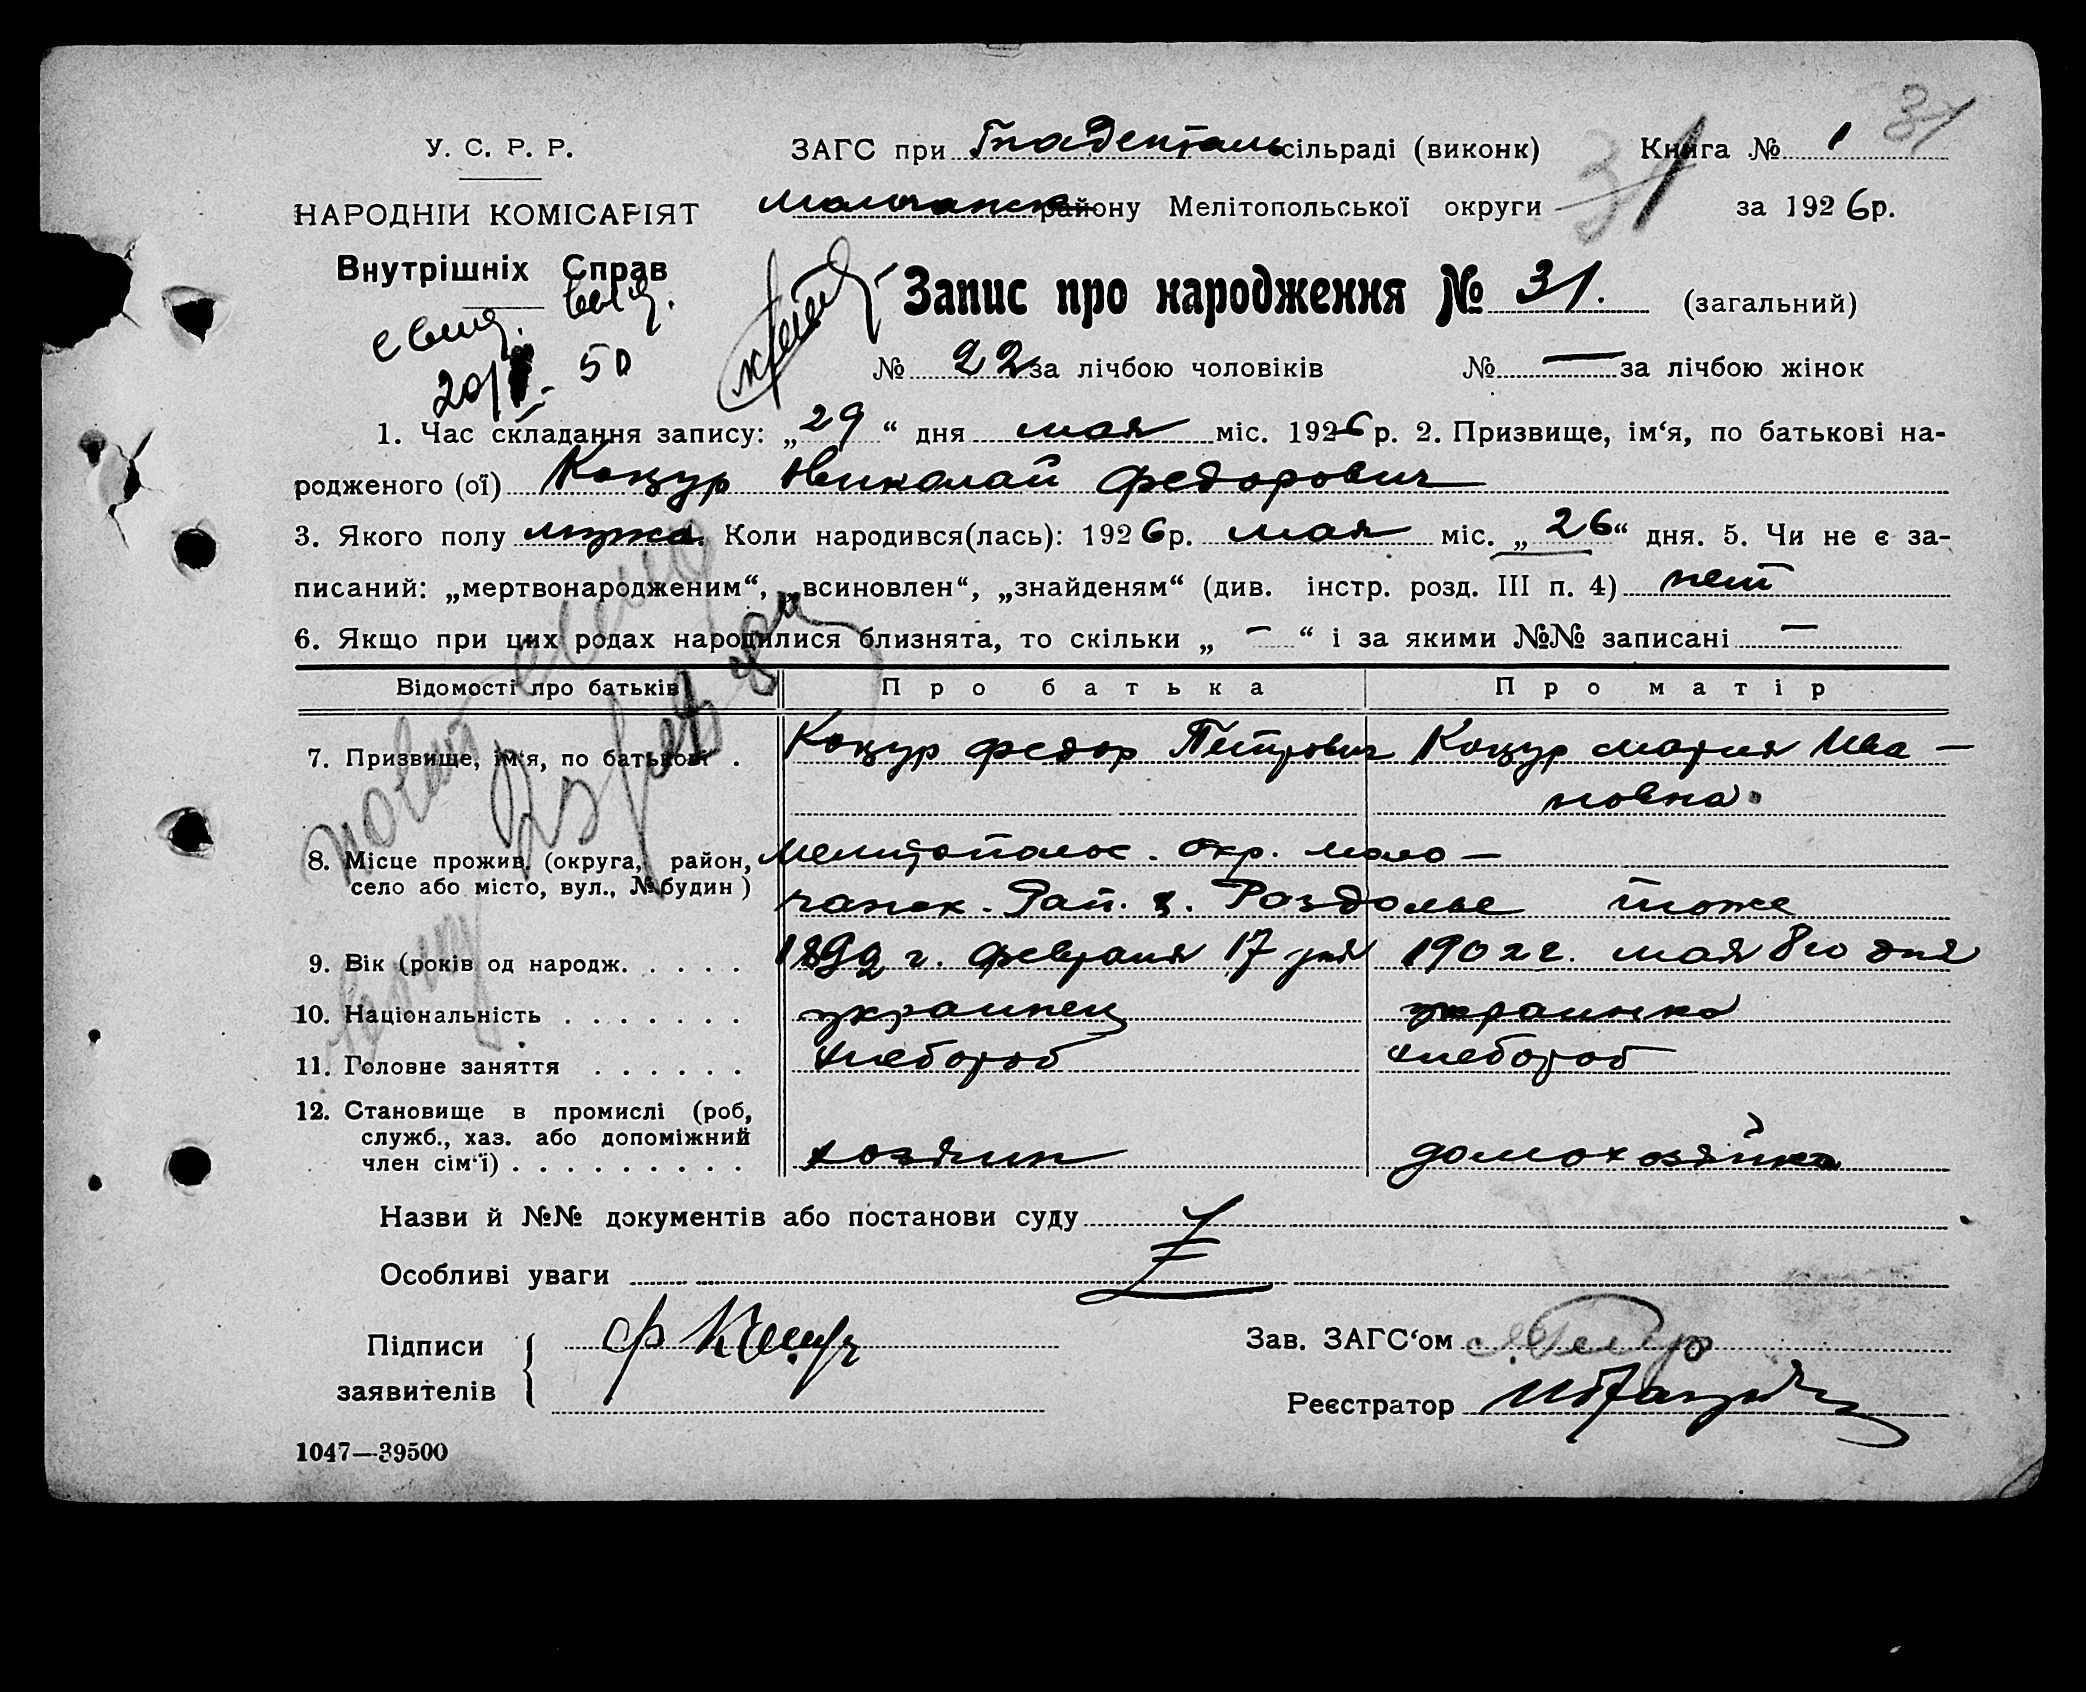 31
У. С. Р. Р.
ЗАГС при Гнаденталь сільраді (виконк) Книга № 1
НАРОДНІЙ КОМІСАРІЯТ
Молочанск району Мелітопольської округи 31 за 1926р.
Внутрішніх Справ
Запис про народження № 31. (загальний)
свид. выд.
20/ - 50
№ 22 за лічбою чоловіків № — за лічбою жінок
1. Час складання запису: „29“ дня мая міс. 1926 р. 2. Призвище, ім‘я, по батькові на-
родженого (ої) Коцур Николай Федорович
3. Якого полу мужск. Коли народився(лась): 1926р. мая міс. „26“ дня. 5. Чи не є за-
писаний: „мертвонародженим“, „всиновлен“, „знайденям“ (див. інстр. розд. III п. 4) нет
6. Якщо при цих родах народилися близнята, то скільки „ — “ і за якими №№ записані —
Відомості про батьків Про батька Про матір
7. Призвище, ім‘я, по батькові . Коцур Федор Петрович Коцур Мария Ива—
новна.
8. Місце прожив. (округа, район, Мелитополос. Окр. Моло—
село або місто, вул., № будин) чанск. Рай. с. Раздолье тоже
9. Вік (років од народж. . . . . 1892 г. февраля 17 дня 1902 г. мая 8го дня
10. Національність . . . . . . . украинец украинка
11. Головне заняття . . . . . . хлебороб хлебороб
12. Становище в промислі (роб,
служб., хаз. або допоміжний
член сім‘ї) . . . . . . . . . хозяин домохозяйка
Назви й №№ документів або постанови суду
Особливі уваги
Підписи Ф Коцур Зав. ЗАГС‘ом
заявителів Реєстратор
1047—39500